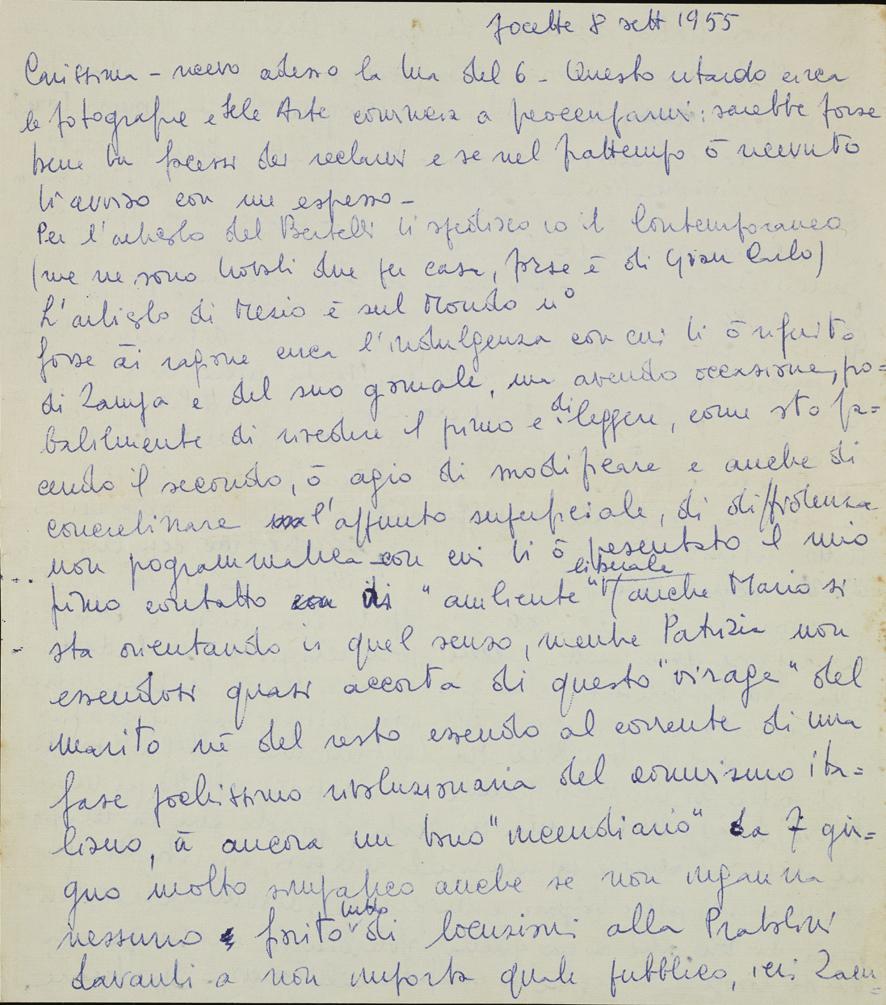 Focette 8 sett 1955
Carissima - ricevo adesso la tua del 6 - Questo ritardo circa
le fotografie e Sele Arte comincia a preoccuparmi: sarebbe forse
bene tu facessi dei reclami e se nel frattempo ò ricevuto
ti avviso con un espresso -
Per l'articolo del Bertelli ti spedisco io il Contemporaneo
(me ne sono trovati due per casa, forse è di Gian Carlo)
L'articolo di Mesio è sul Mondo n°
forse ài ragione circa l'indulgenza con cui ti ò riferito
di Zampa e del suo giornale, ma avendo occasione, pro=
babilmente di rivedere il primo e di leggere, come sto fa=
cendo il secondo, ò agio di modificare e anche di
concretizzare l'appunto superficiale, di diffidenza
non programmatica con cui ti ò presentato il mio
primo contatto di "ambiente" liberale (anche Mario si
sta orientando in quel senso, mentre Patrizia non
essendosi quasi accorta di questo "virage" del
marito nè del resto essendo al corrente di una
fase pochissimo rivoluzionaria del comunismo ita=
liano, à ancora un tono "incendiario" da 7 giu=
gno molto simpatico anche se non inganna
nessuno fiorito tutto di locuzioni alla Pratolini
davanti a non importa quale pubblico, ieri Zam=